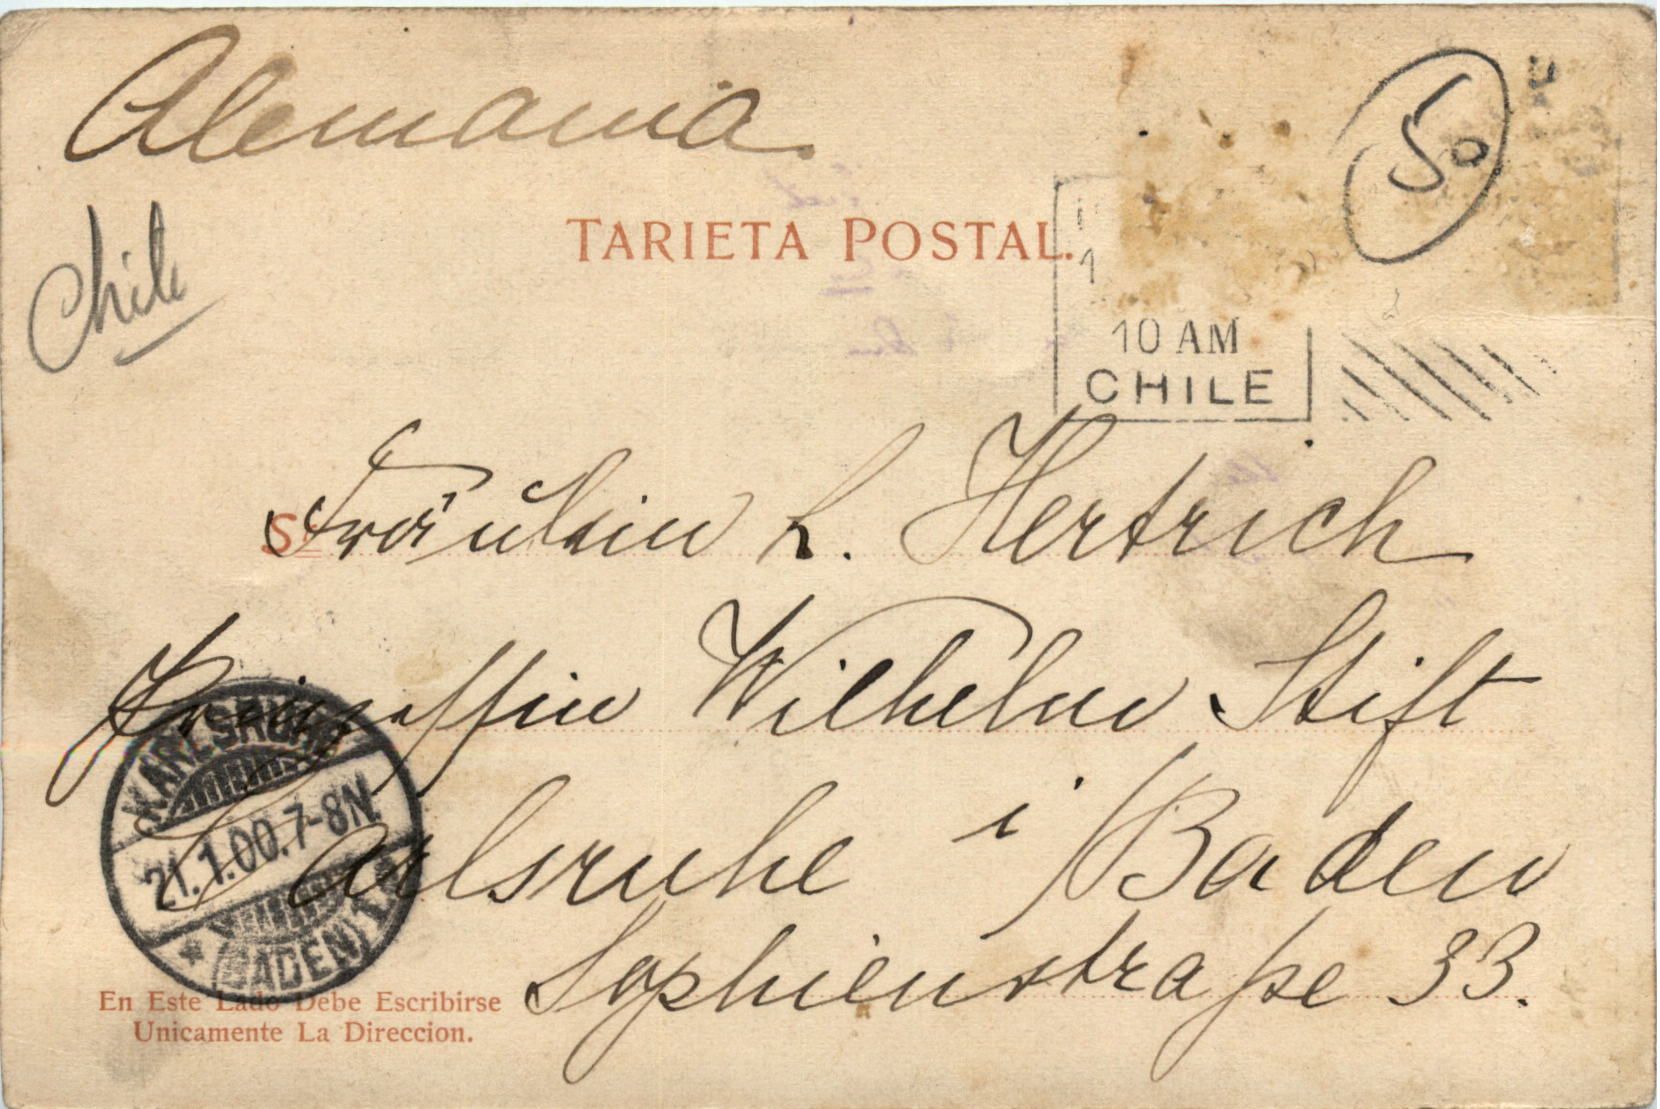 Alemania.
50
Chile
TARIETA POSTAL.
10 AM
CHILE
S
Fräulein L. Hertrich
Prinzessin Wilhelm Stift
Karlsruhe i/Baden
Sophienstraße 33.
KARLSRUHE
21.1.00.7-8N.
* (BADEN) 1
En Este Lado Debe Escribirse
Unicamente La Direccion.